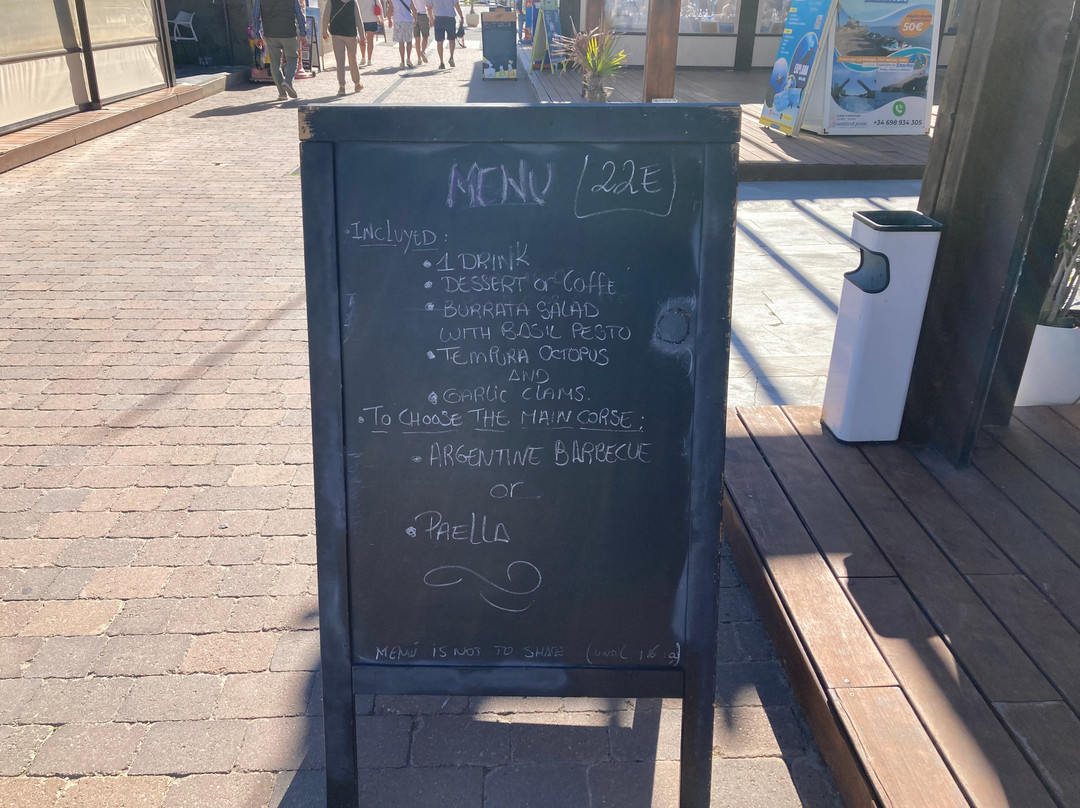 MENU 22E
• INCLUYED :
• 1 DRINK
• DESSERT or COFFE
• BURRATA SALAD
WITH BASIL PESTO
• TEMPURA OCTOPUS
AND
• GARLIC CLAMS.
• TO CHOOSE THE MAIN CORSE :
• ARGENTINE BARBECUE
or
• PAELLA
MENÚ IS NOT TO SHARE
50€
+34 698 934 305